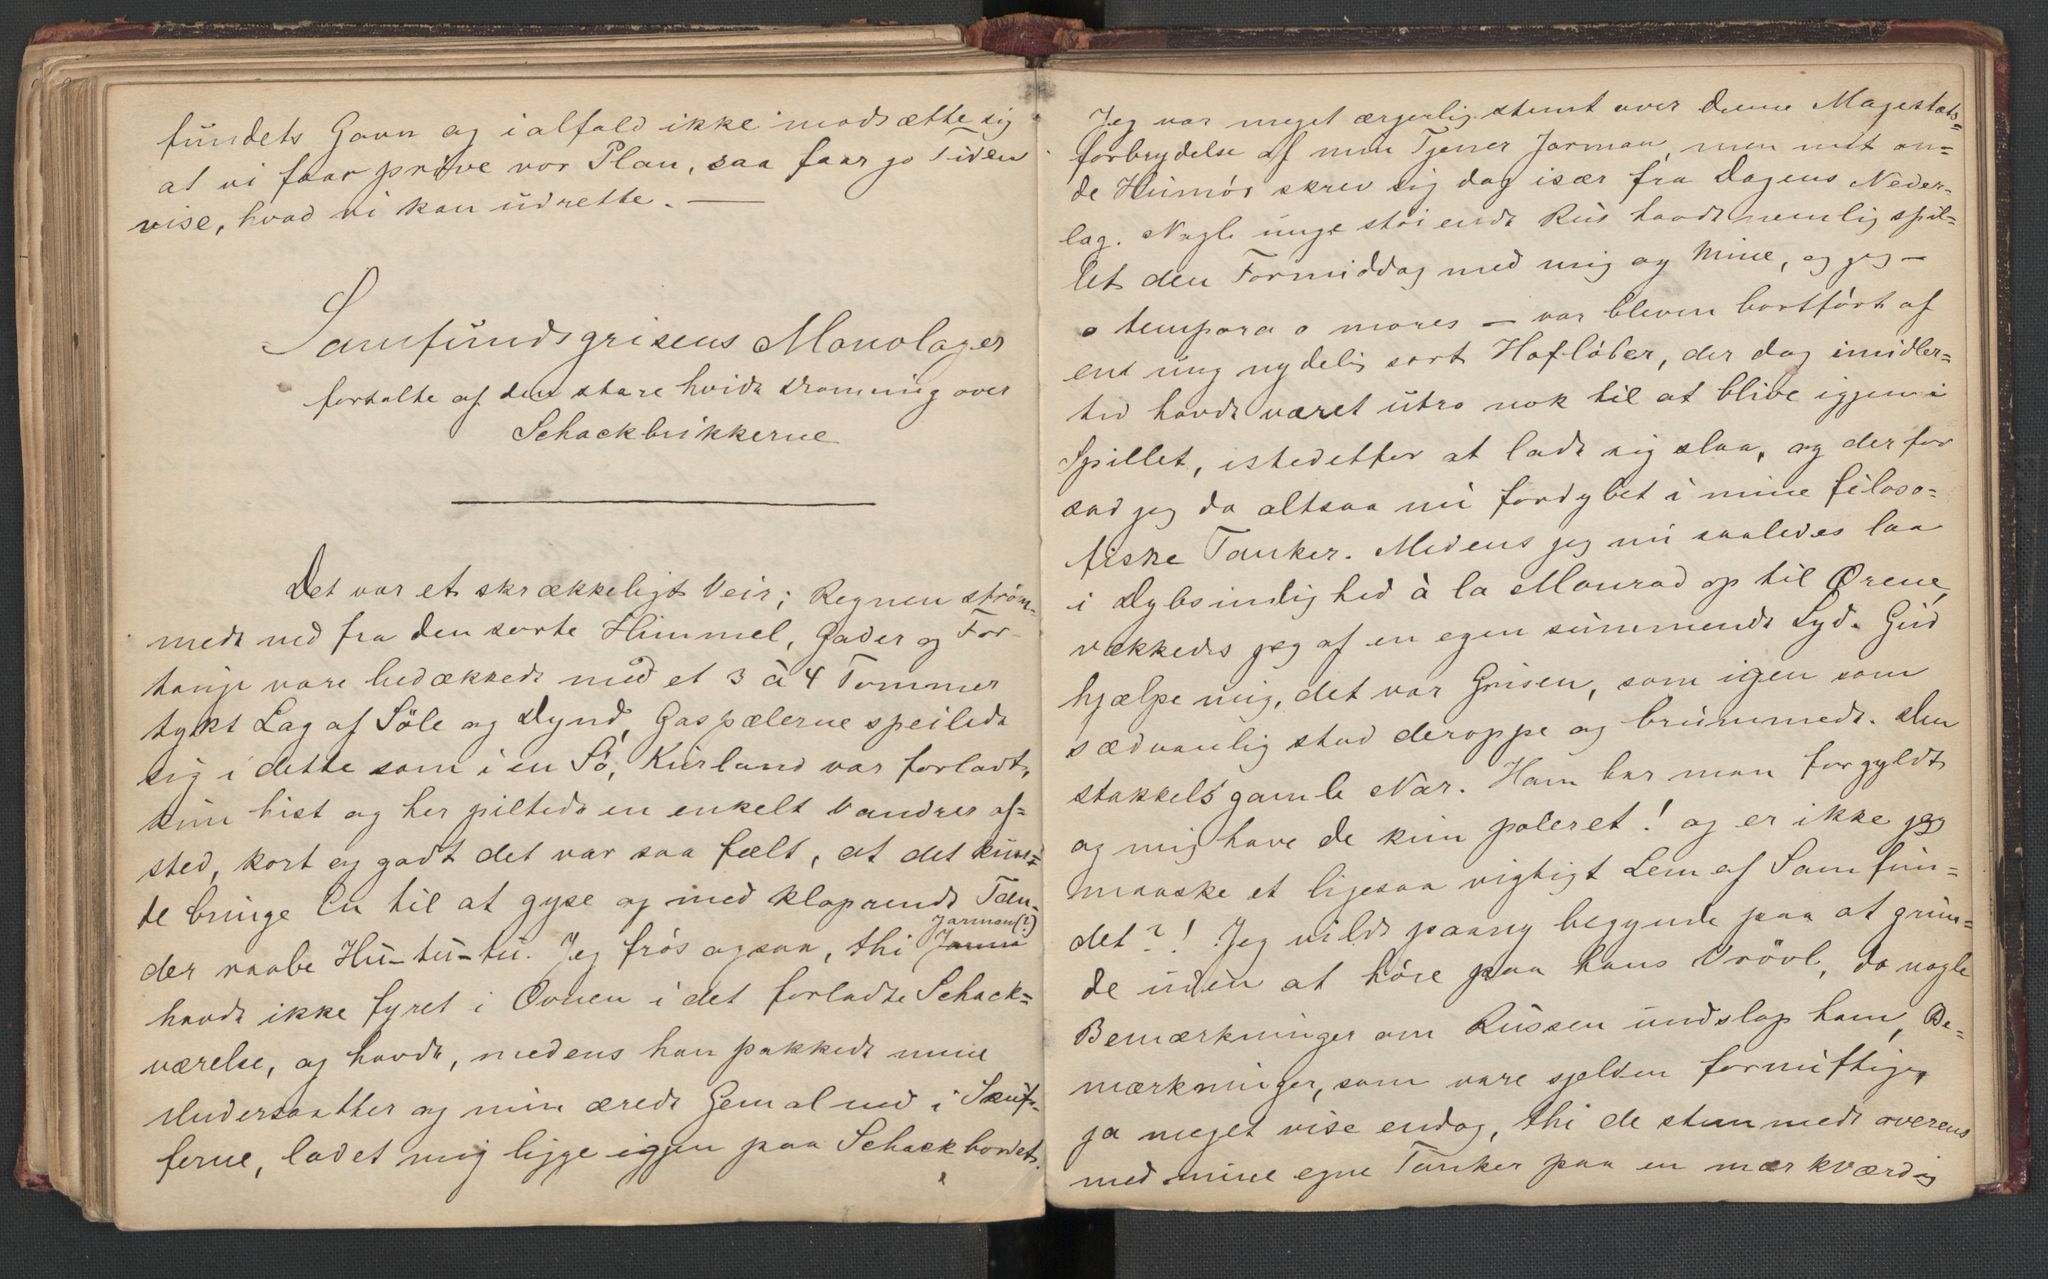 fundets Gavn og ialfald ikke modsætte sig
at vi faar prøve vor Plan, saa faar jo Tiden
vise, hvad vi kan udrette. —
Samfundsgrisens Monologer
fortalte af den store hvide Dronning over
Schackbrikkerne
Det var et skrækkeligt Veir; Regnen strøm-
mede ned fra den sorte Himmel, Gader og For-
touge vare bedækkede med et 3 à 4 Tommer
tykt Lag af Søle og Dynd, Gaspælerne speilede
sig i dette som i en Sø, Kurland var forladt,
kun hist og her piltede en enkelt Vandrer af-
sted, kort og godt det var saa fælt, at det kun-
de bringe En til at gyse og med klaprende Tæn-
der raabe Hu-tu-tu. Jeg frøs ogsaa, thi Jarman(?)
havde ikke fyret i Ovnen i det forladte Schack-
værelse, og havde, medens han pakkede mine
Undersaatter og min ærede Gemal ned i Skuf-
ferne, ladet mig ligge igjen paa Schackbordet.
Jeg var meget ærgerlig stemt over denne Magestæts-
forbrydelse af min Tjener Jarman, men mit on-
de Humør skrev sig dog især fra Dagens Neder-
lag. Nogle unge støiende Rus havde nemlig spil-
let den Formiddag med mig og Mine, og jeg —
o tempora o mores — var bleven bortført af
en ung nydelig sort Hofløber, der dog imidler-
tid havde været utro nok til at blive igjen i
Spillet, istedetfor at lade sig slaa, og derfor
sad jeg da altsaa nu fordybet i mine filoso-
fiske Tanker. Medens jeg nu saaledes laa
i Dybsindighed à la Monrad op til Ørene,
vækkedes jeg af en egen summende Lyd. Gud
hjælpe mig, det var Grisen, som igen som
sædvanlig stod deroppe og brummede. Den
stakkels gamle Nar. Ham har man forgyldt
og mig have de kun poleret! og er ikke jeg
maaske et ligesaa vigtigt Lem af Samfun-
det?! Jeg vilde paany begynde paa at grun-
de uden at høre paa hans Vrøvl, da nogle
Bemærkninger om Russen undslap ham, Be-
mærkninger, som vare sjelden fornuftige,
ja meget vise endog, thi de stemmede overens
med mine egne Tanker paa en mærkværdig